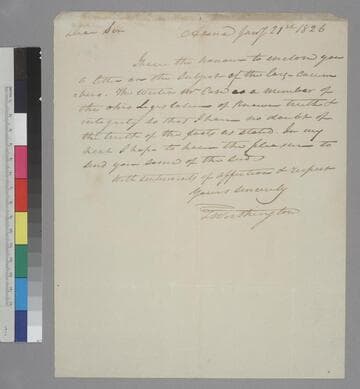 Dear Sir Adena Jany 21st 1826
I have the honour to enclose you
a letter on the subject of the large cucum
bers. The writer Mr. Case is a member of
the ohio Legislature of known truth &
integrity so that I have no doubt of
the truth of the facts as stated. In my
next I hope to have the pleasure to
send you some of the seed.
With sentiments of affection & respect
Yours sincerely
T Worthington